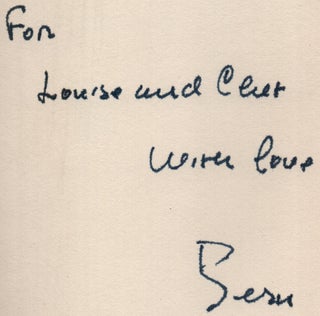 For
Louise and Chet
With love
Bern